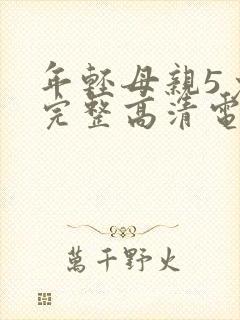 年軽母親5
完整高清電
萬千野火